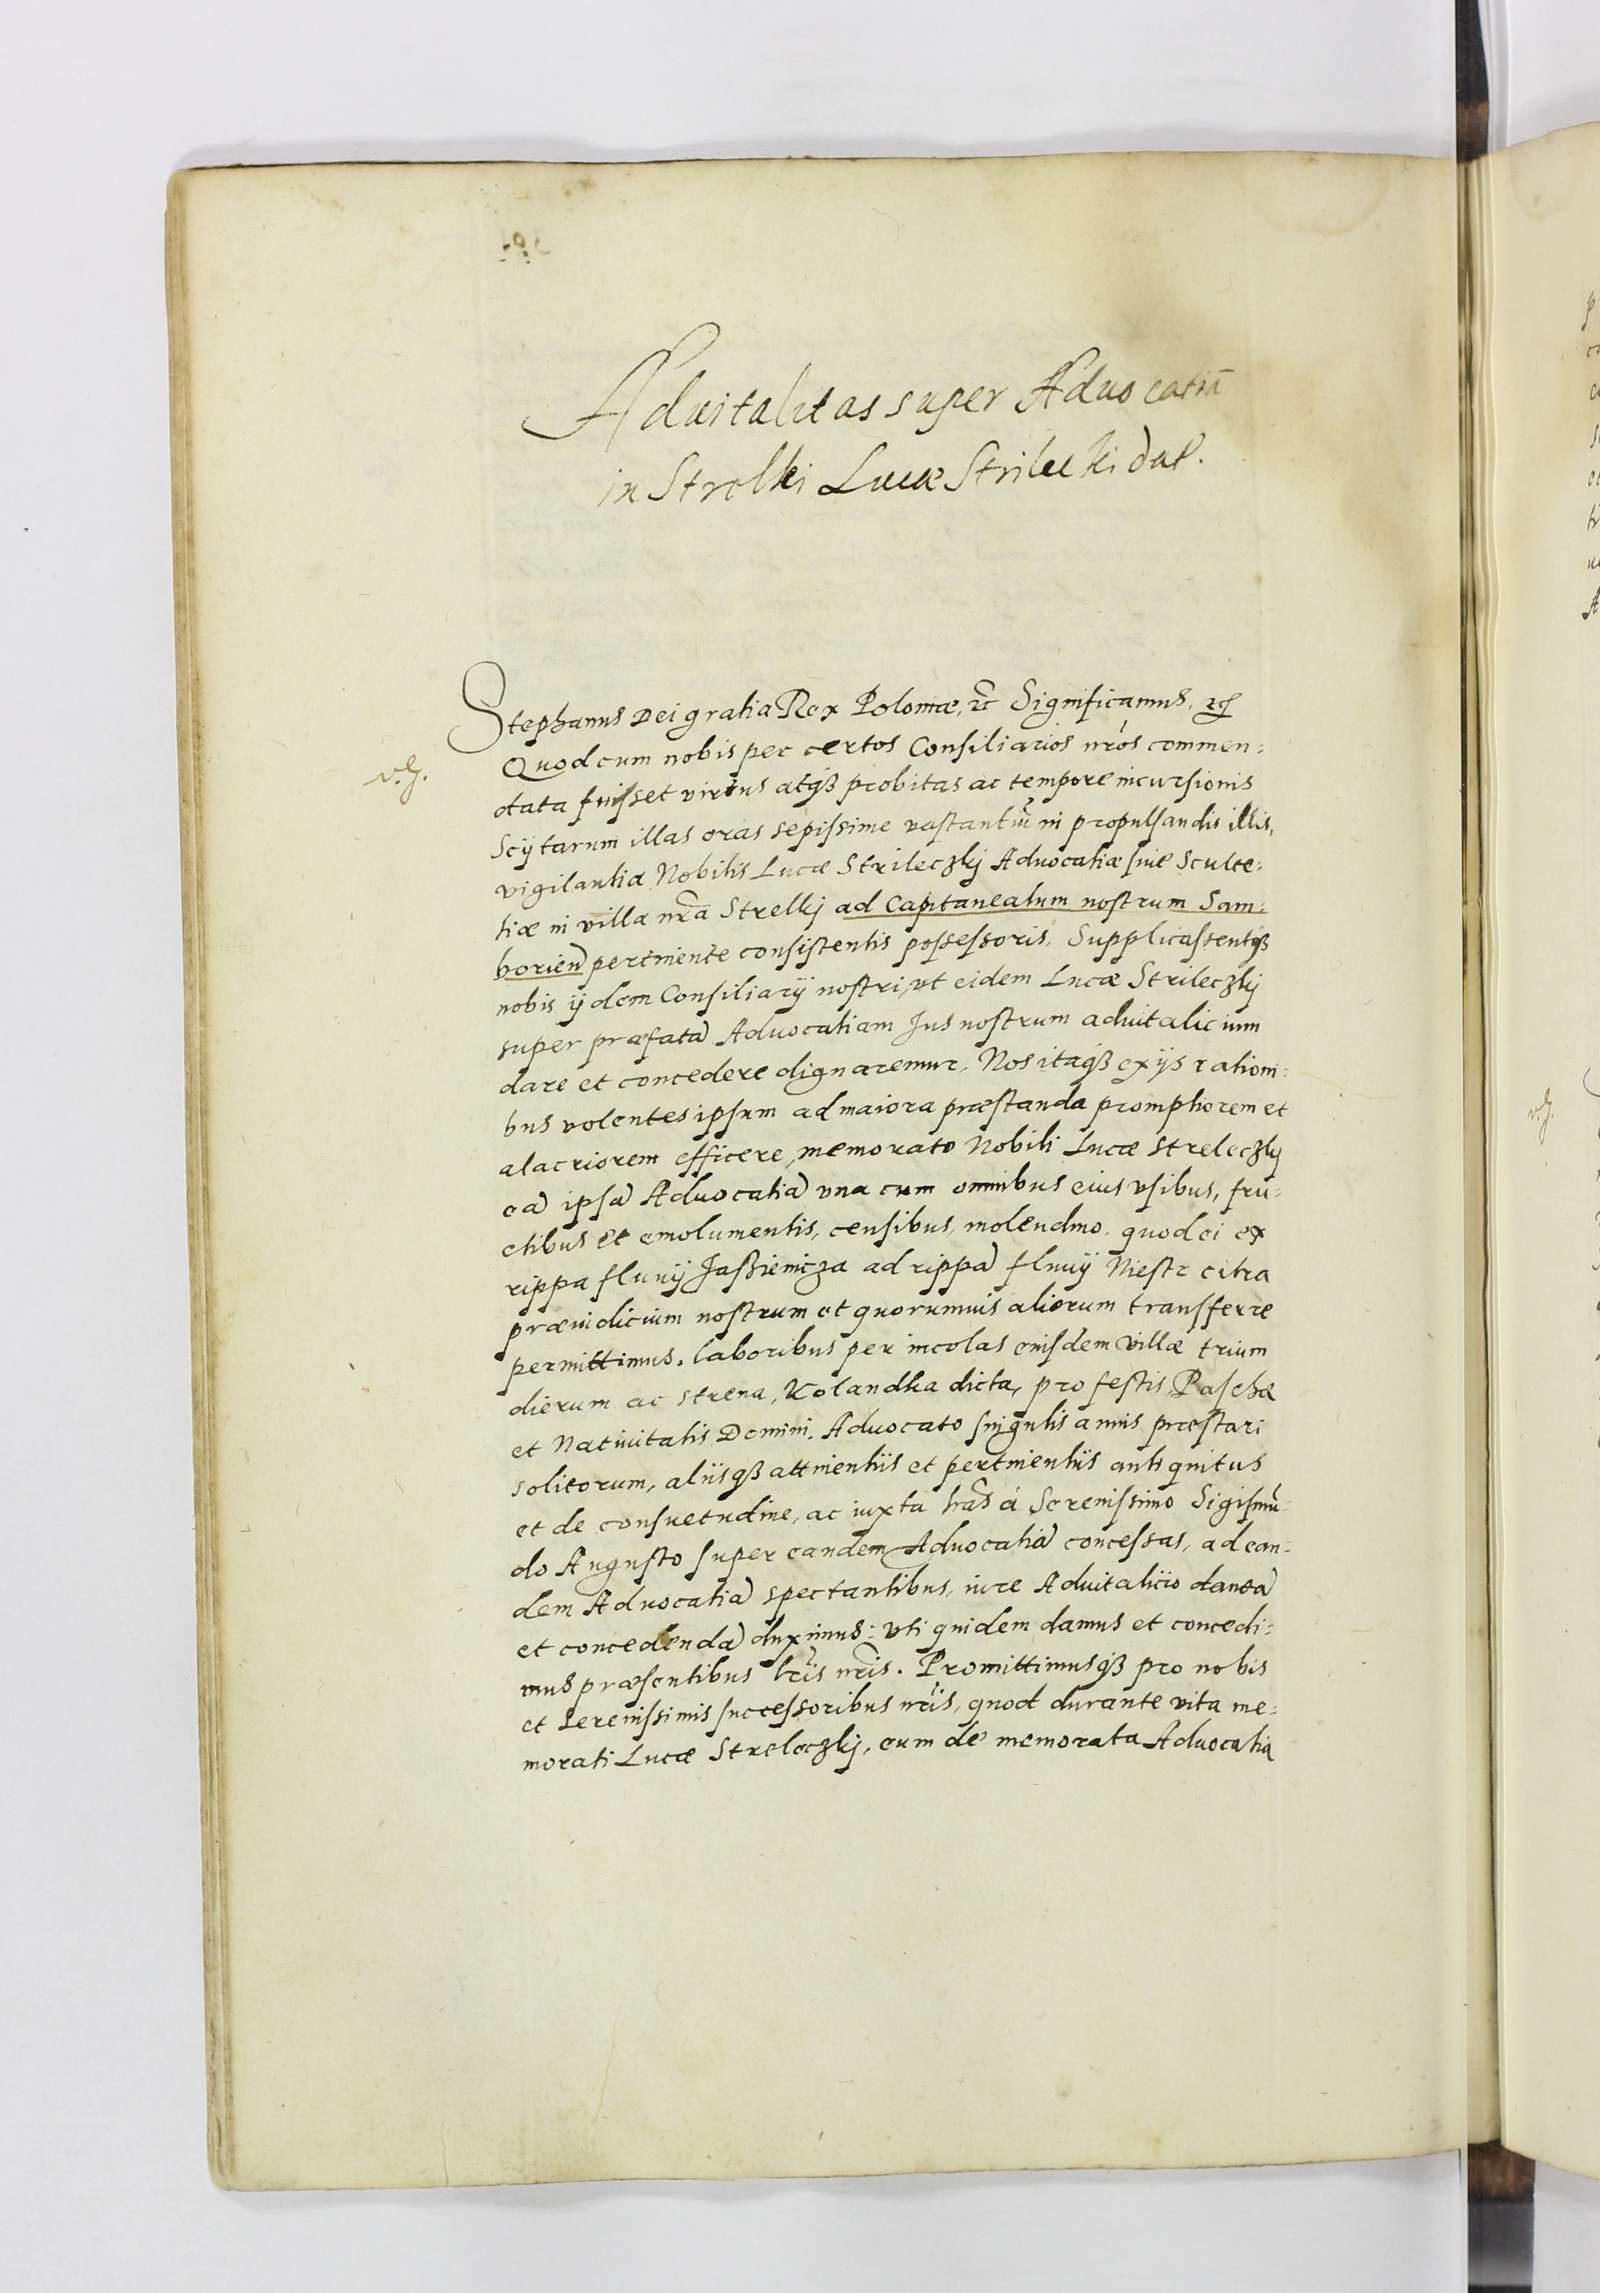 Aduitalitas super Aduocatiā
in Strelki Lucæ Strileckj dat.
Stephanus Dei gratia Rex Poloniæ, &c Significamus, &c
v. g.
Quod cum nobis per certos Consiliarios nr̃os commen:
data fuisset virtus atq3 probitas ac tempore incursionis
Scijtarum illas oras sepissime vastantiũ in propulsandis illis,
vigilantia Nobilis Lucæ Strileczkj Aduocatiæ siue Sculte:
tiæ in villa nr̃a Strelkj ad Capitaneatum nostrum Sam:
borien̄ pertinente consistentis possessoris, Supplicassentq3
nobis ijdem Consiliarij nostri, vt eidem Lucæ Strileczkj
super præfatā Aduocatiam Jus nostrum aduitalicium
dare et concedere dignaremur, Nos itaq3 ex ijs rationi:
bus volentes ipsum ad maiora præstanda promptiorem et
alacriorem efficere, memorato Nobili Lucæ Streleczkj
eā ipsā Aduocatiā vna cum omnibus eius vsibus, fru:
ctibus et emolumentis, censibus, molendino, quod ei ex
rippa fluuij Jassienicza ad rippā fluuij Niestr citra
præiudicium nostrum et quorumuis aliorum transferre
permittimus, laboribus per incolas eiusdem villæ trium
dierum ac strena, Kolandka dicta, pro festis Paschæ
et Natiuitatis Domini, Aduocato singulis annis præstari
solitorum, aliisq3 attinentiis et pertinentiis antiquitus
et de consuetudine, ac iuxta lr̃as à Serenissimo Sigismũ:
do Augusto super eandem Aduocatiā concessas, ad ean:
dem Aduocatiā spectantibus, iure Aduitalicio dandā
et concedendā duximus: vti quidem damus et concedi:
mus præsentibus lr̃is nr̃is. Promittimusq3 pro nobis
et Serenissimis successoribus nr̃is, quod durante vita me:
morati Lucæ Streleczkj, eum de memorata Aduocatia